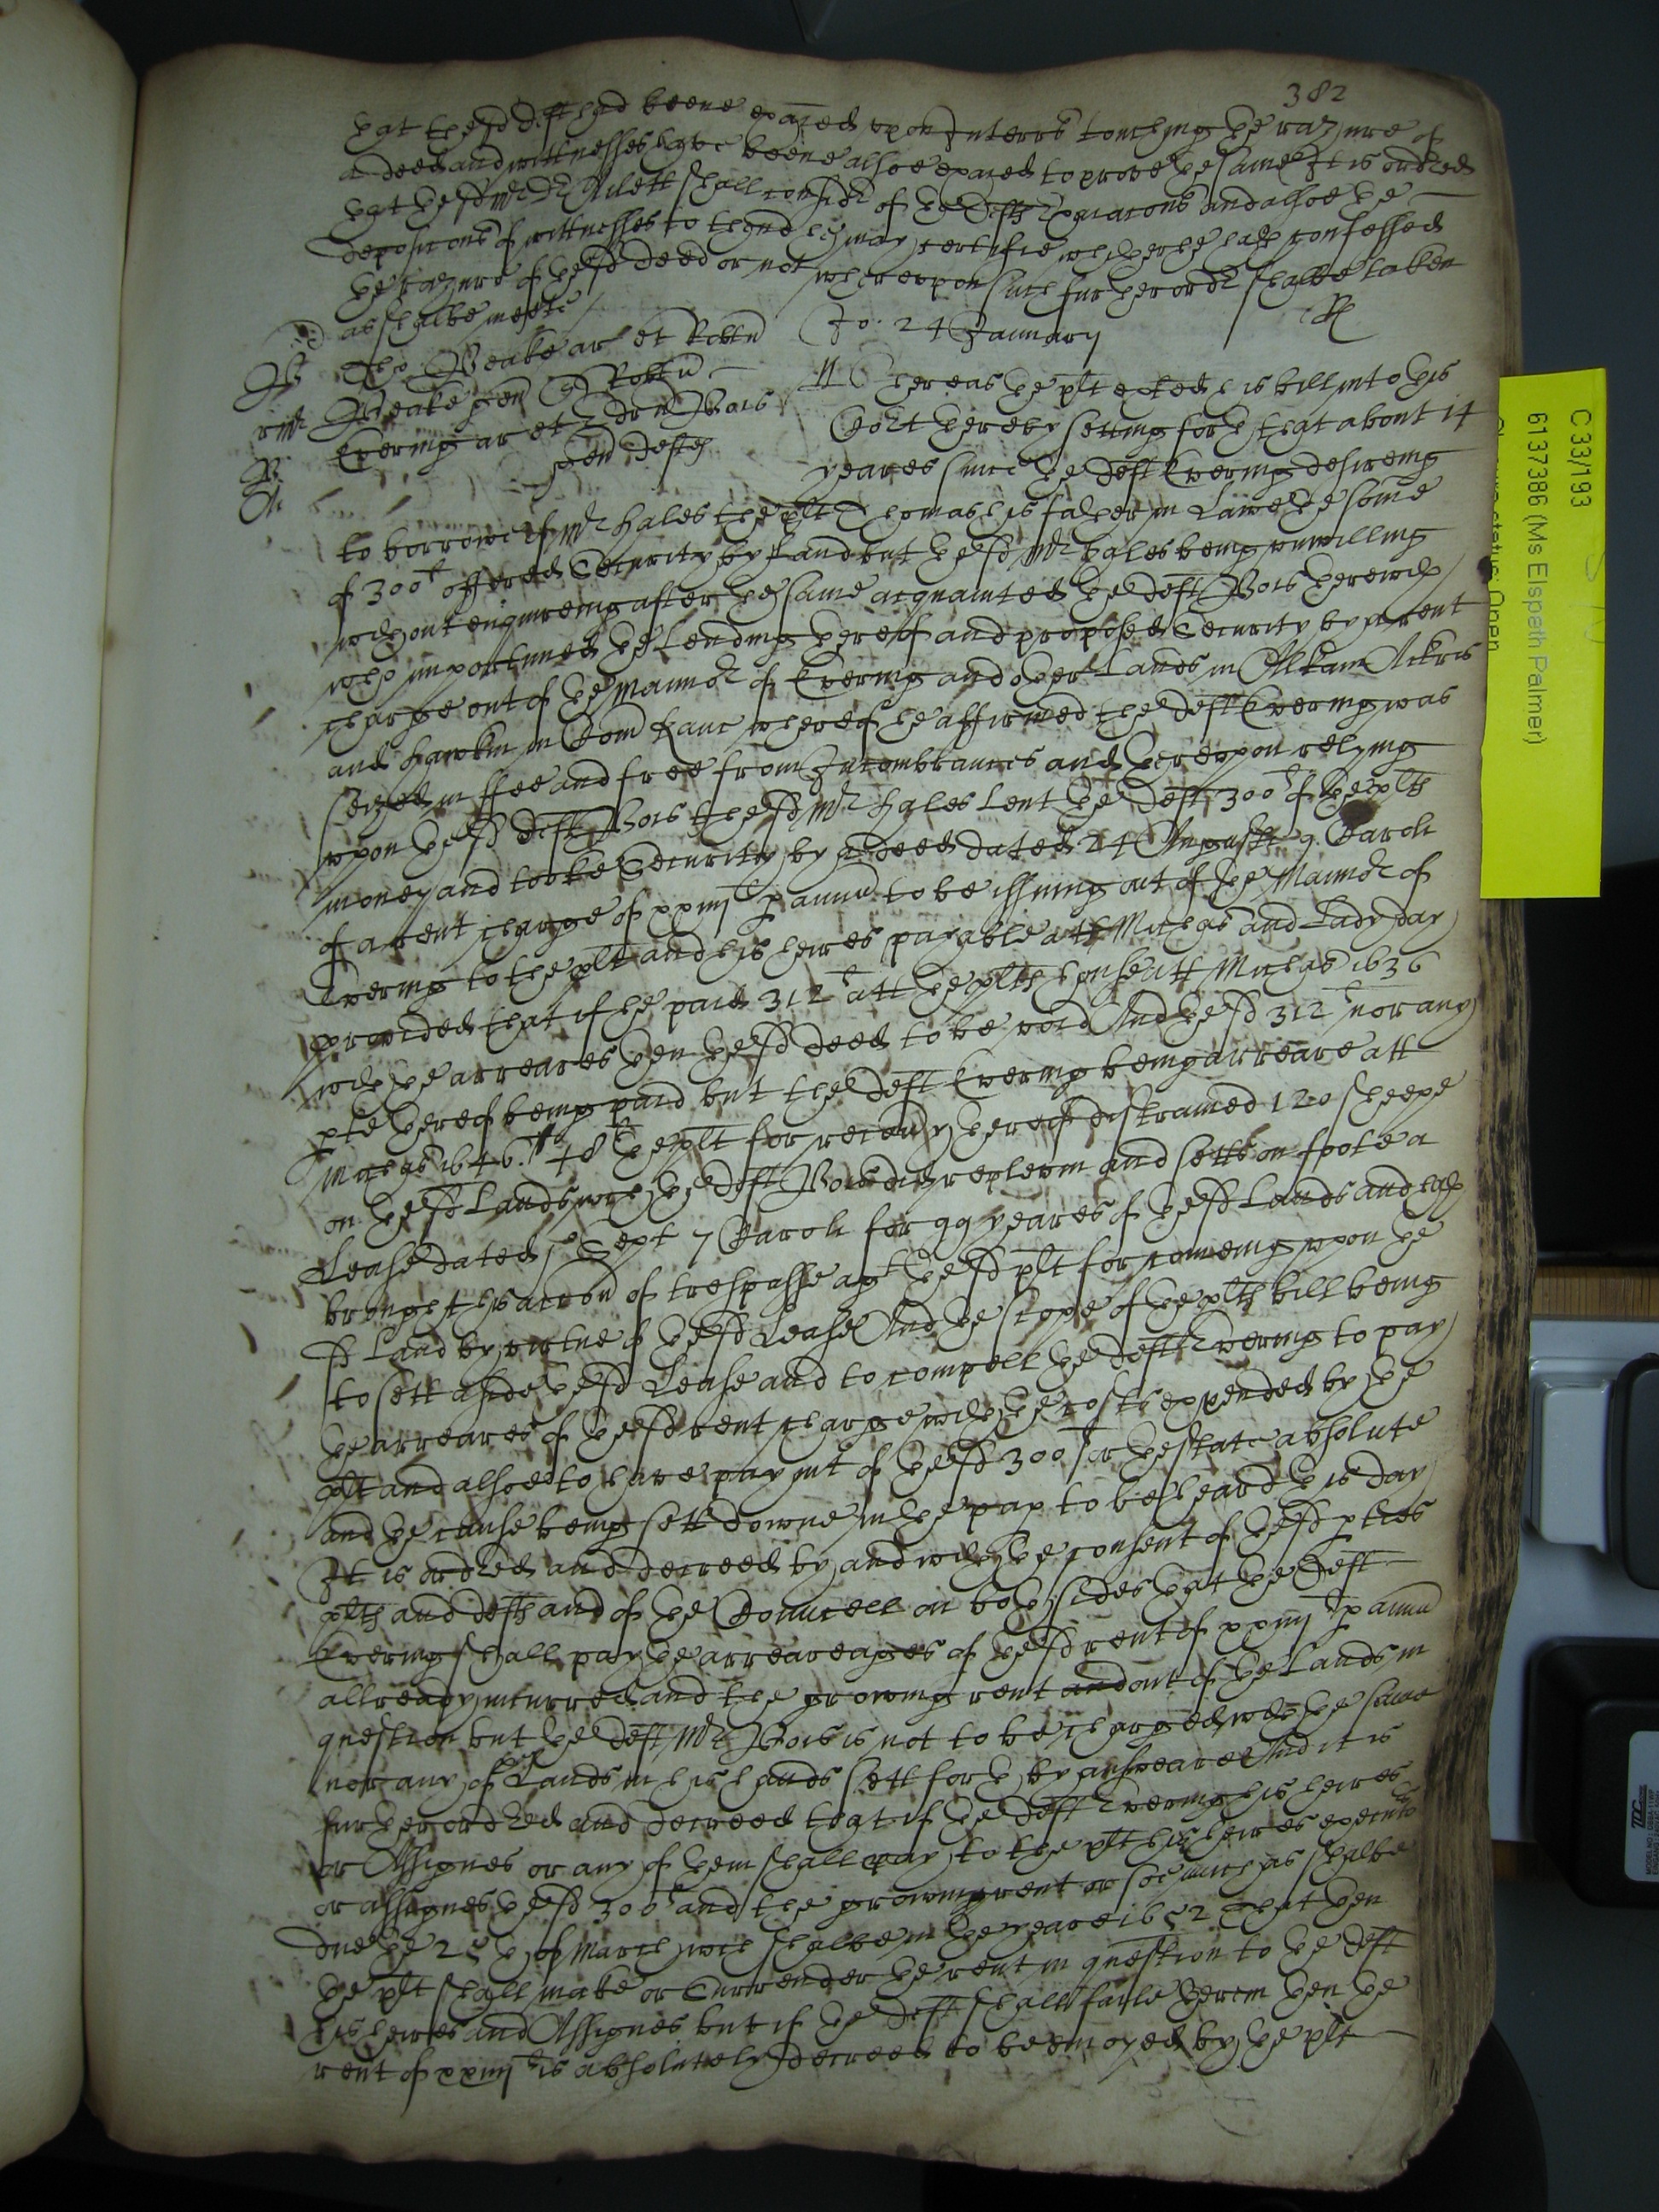 382
that the sd deft had beene exaied upon Interrs touching the razure of
a deed and wittnesses have beene alsoe exaied to prove the same It is ordred
that the sd Mr Dr Ailett shall consider of the defts exaiacons and alsoe the
deposicons of wittnesses to thend hee may certifie whether hee hath confessed
the razure of the sd deed or not whereupon such further order shalbe taken
as shalbe meete
Jo. 24 January
Tho Peake ar et Robtu
Peake gen Robtu
Evering ar et Edru Bois
gen defts
Whereas the plt exhted his bill into this
Court thereby setting forth that about 14
yeares since the deft Evering desireing
to borrowe of Mr Hales the plt Thomas his father in Lawe the some
of 300l offered Security by Land but the sd Mr Hales being unwilling
without enquireing after the same acquainted the deft Bois therewith
who importuned the Lending thereof and proposed Security by a rent
charge out of the Mannor of Evering and other Lands in Alkam Ackris
and Hawkin in Com Kanc whereof he affirmed the deft Evering was
seized in ffee and free from Incombrances and thereupon relying
upon the sd deft Bois the sd Mr Hales Lent the deft 300l of the plts
money and tooke Security by a deed dated 24 August 9 Caroli
of a rent charge of xxiiijl p annu to be issuing out of the Mannor of
Evering to the plt and his heires payable att Michas and Lady day
provided that if he paid 312l att the plts house att Michas 1636
with the arreares then the sd deed to be void And the sd 312l nor any
pte thereof being paid but the deft Evering being arreare att
Michas 1646 48l the plt for recovry thereof distrained 120 sheepe
on the sd Lands which the deft Bois did replevin and setts on foote a
Lease dated 1o Sept 7 Caroli for 99 yeares of the sd Lands and hath
brought his accon of trespasse agt the sd plt for comeing upon the
sd Land by virtue of the sd Lease And the scope of the plts bill being
to sett aside the sd Lease and to compell the deft Evering to pay
the arreares of the sd rent charge with the costs expended by the
plt and alsoe to have paymt of the sd 300l or the estate absolute
and the cause being sett downe in the pap to be heard this day
It is ordred and decreed by and with the consent of the sd pties
plts and defts and of the Councell on both sides that the deft
Evering shall pay the arreareages of the sd rent of xxiiijl p annu
allready incurred and the growing rent and out of the Lands in
question but the deft Mr Bois is not to be charged with the same
nor any of the Lands in his hands sett forth by answeare And it is
further ordred and decreed that if the deft Evering his heires
or Assignes or any of them shall pay to the plt his heires executors
or assignes the sd 300l and the growing rent or soe much as shalbe
due the 25th of March which shalbe in the yeare 1652 That then
the plt shall make or Surrender the rent in question to the deft
his heires and Assignes but if the deft shall faile therein then the
rent of xxiiijl is absolutely decreed to be enioyed by the plt
C 33/193
6137386 (Ms Elspeth Palmer)
Open